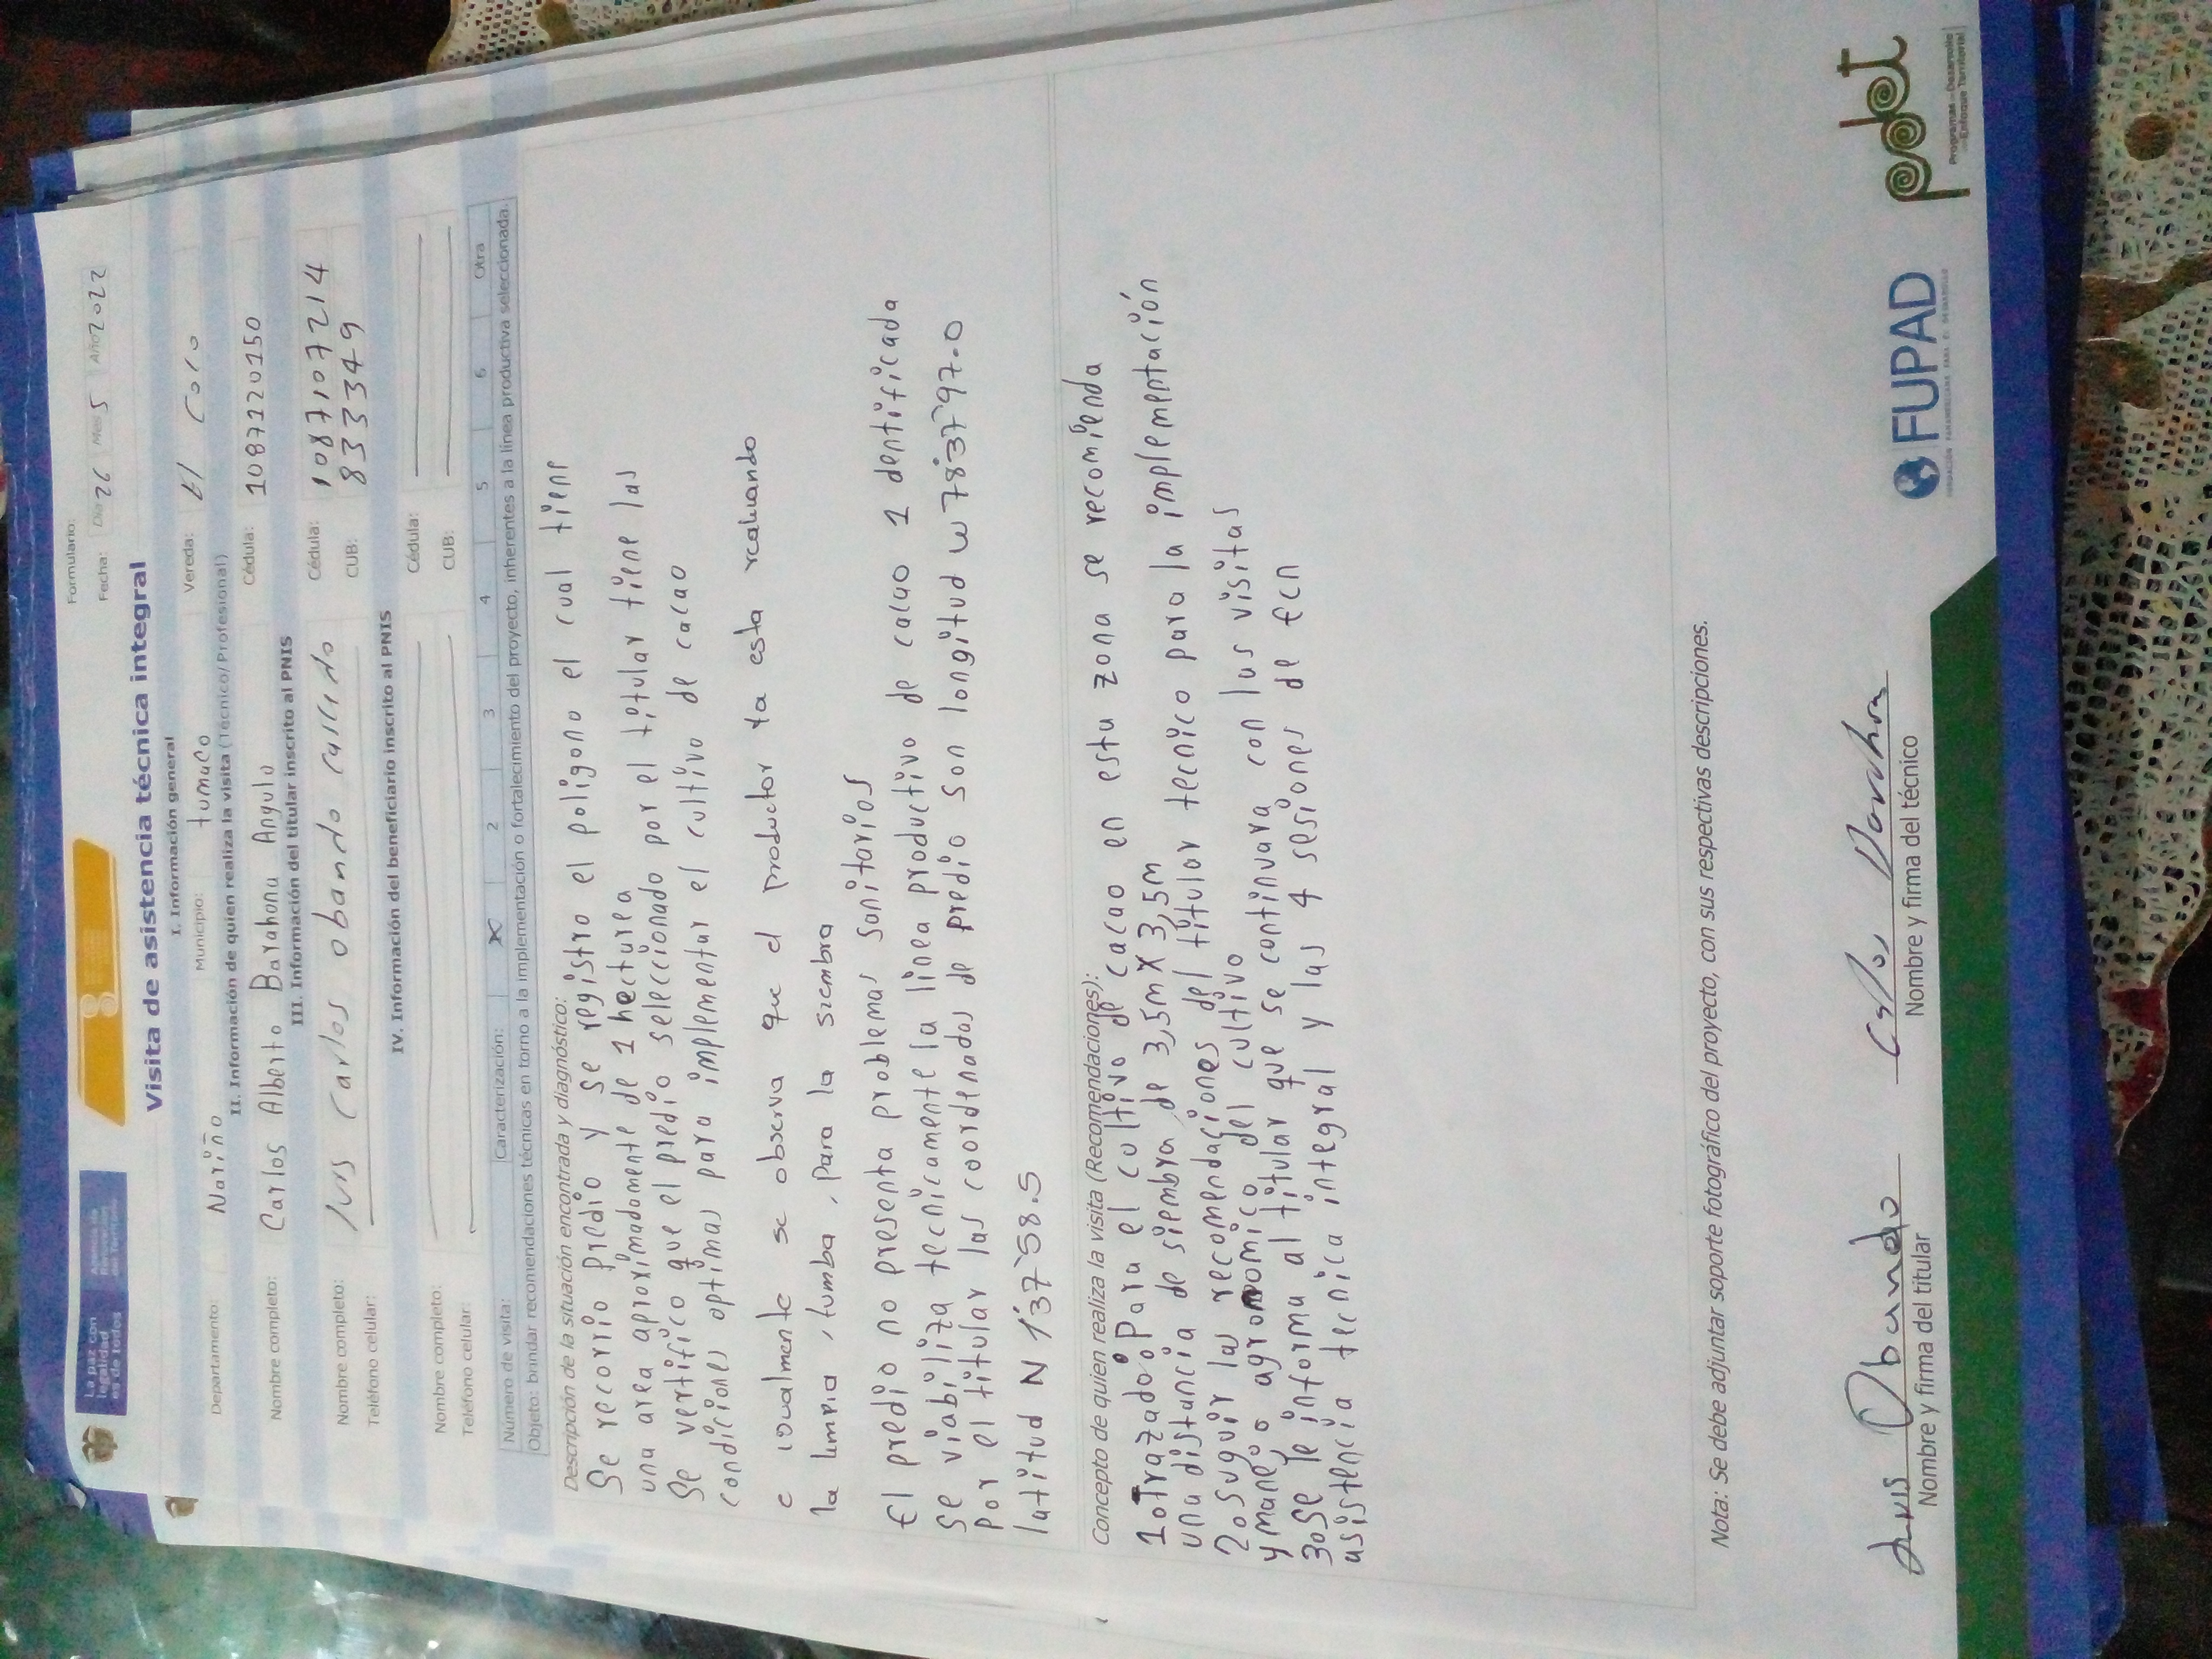 La paz con
legalidad
es de todos
Agencia de
Renovación
del Territorio
Formulario:
Fecha: Día 26 Mes 5 Año 2022
Visita de asistencia técnica integral
I. Información general
Departamento: Nariño Municipio: tumaco Vereda: El Coro
II. Información de quien realiza la visita (Técnico/Profesional)
Nombre completo: Carlos Alberto Barahona Angulo Cédula:
III. Información del titular inscrito al PNIS
Nombre completo: luis Carlos obando Cédula: 1087107214
Teléfono celular: CUB: 8333349
IV. Información del beneficiario inscrito al PNIS
Nombre completo: Cédula:
Teléfono celular: CUB:
Número de visita: Caracterización: X 2 3 4 5 6 Otra
Objeto: brindar recomendaciones técnicas en torno a la implementación o fortalecimiento del proyecto, inherentes a la línea productiva seleccionada.
Descripción de la situación encontrada y diagnóstico:
Se recorrio predio y se registro el poligono el cual tiene
una area aproximadamente de 1 hecturea
Se vertifico que el predio seleccionado por el titular tiene las
condiciones optimas para implementar el cultivo de cacao
e igualmente se observa que el productor ta esta realuando
la limpia, tumba, para la siembra
El predio no presenta problemas sanitarios
Se viabiliza tecnicamente la linea productivo de cacao 1 dentificada
por el titular las coordenadas de predio son longitud w 78°37'97.0
latitud N 1°37'58.5
Concepto de quien realiza la visita (Recomendaciones):
1o trazado: Para el cultivo de cacao en esta zona se recomienda
una distancia de siembra de 3,5m x 3,5m
2o suguir las recomendaciones del titular tecnico para la implementación
y manejo agronomico del cultivo
3o Se le informa al titular que se continuara con las visitas
asistencia tecnica integral y las 4 sesiones de Ecn
Nota: Se debe adjuntar soporte fotográfico del proyecto, con sus respectivas descripciones.
Luis Obando Carlos Barahona
Nombre y firma del titular Nombre y firma del técnico
FUPAD
FUNDACIÓN PANAMERICANA PARA EL DESARROLLO
pdet
Programas de Desarrollo
con Enfoque Territorial